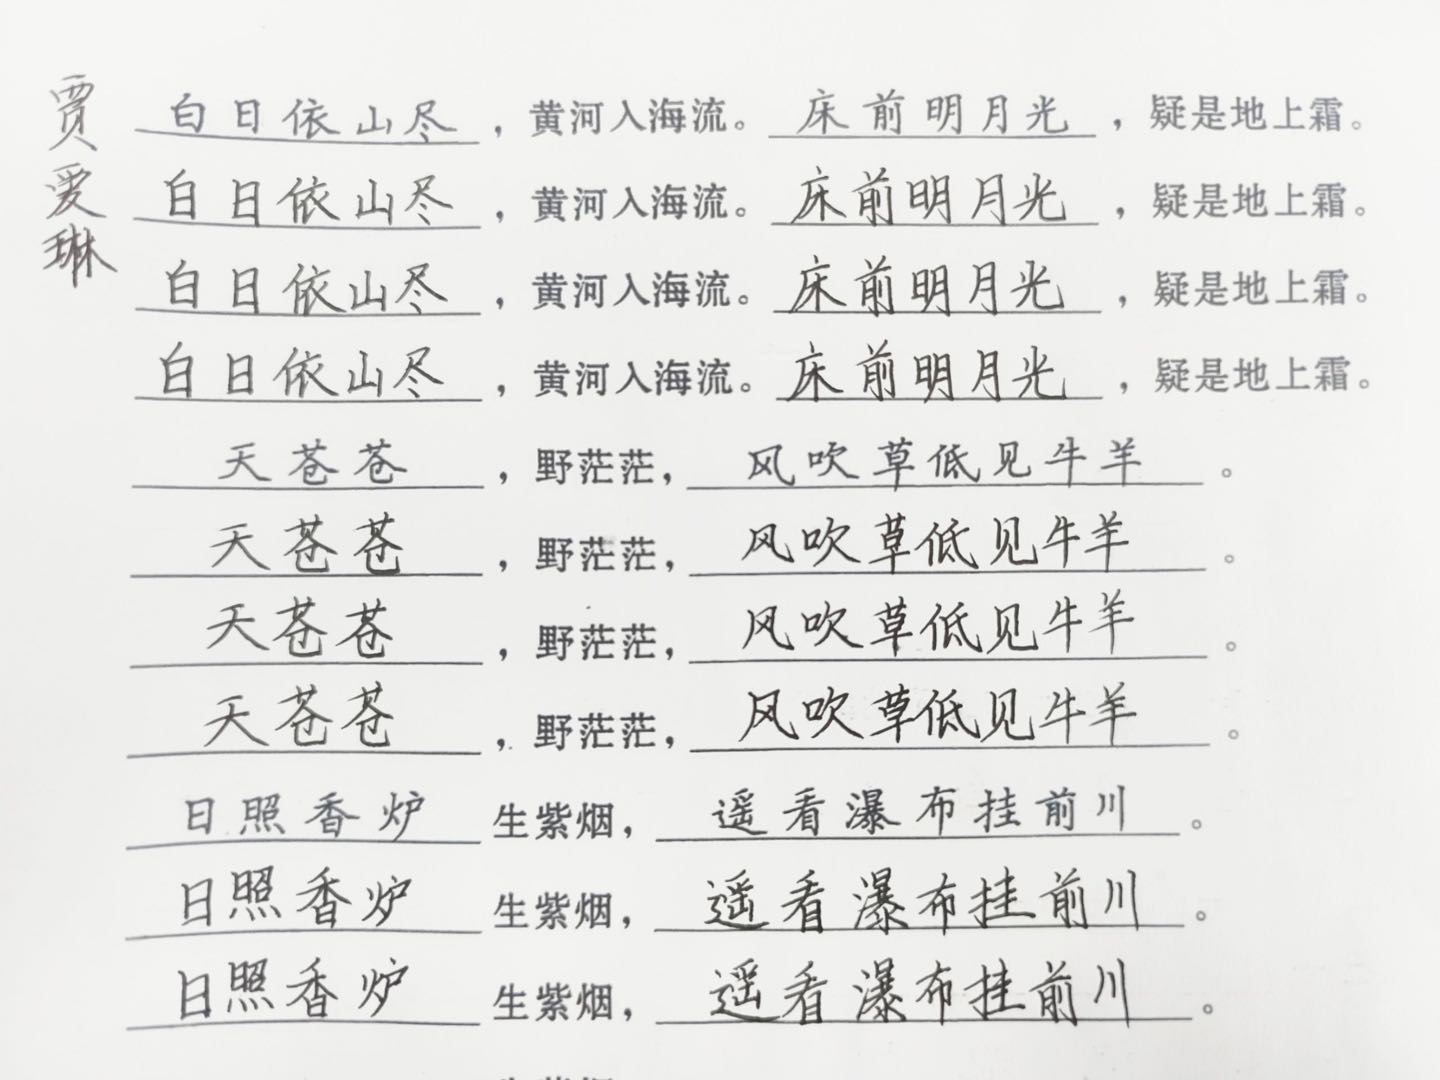 贾爱琳
白日依山尽，黄河入海流。床前明月光，疑是地上霜。
白日依山尽，黄河入海流。床前明月光，疑是地上霜。
白日依山尽，黄河入海流。床前明月光，疑是地上霜。
白日依山尽，黄河入海流。床前明月光，疑是地上霜。
天苍苍，野茫茫，风吹草低见牛羊。
天苍苍，野茫茫，风吹草低见牛羊。
天苍苍，野茫茫，风吹草低见牛羊。
天苍苍，野茫茫，风吹草低见牛羊。
日照香炉生紫烟，遥看瀑布挂前川。
日照香炉生紫烟，遥看瀑布挂前川。
日照香炉生紫烟，遥看瀑布挂前川。